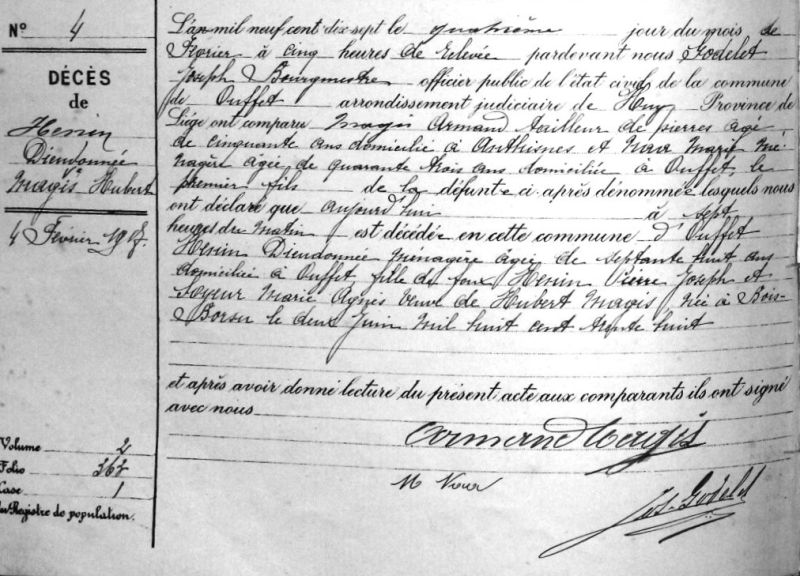 N° 4
DÉCÈS
de
Henin
Dieudonnée
Vve
Magis Hubert
4 Février 1917.
Volume 2
Folio 363
Case 1
du Registre de population.
L'an mil neuf cent dix sept le quatrième jour du mois de
Février à cinq heures de relevée pardevant nous Godelet
Joseph Bourgmestre officier public de l'état civil de la commune
de Ouffet arrondissement judiciaire de Huy Province de
Liége ont comparu Magis Armand tailleur de pierres agé
de cinquante ans domicilié à Anthisnes et Marie mé-
nagère agée de quarante trois ans domiciliée à Ouffet, le
premier fils de la défunte ci-après dénommée lesquels nous
ont déclaré que aujourd'hui à sept
heures du matin est décédée en cette commune d'Ouffet
Henin Dieudonnée ménagère agée de septante huit ans
domiciliée à Ouffet, fille de feux Henin Pierre Joseph et
Soyeur Marie Agnès veuve de Hubert Magis née à Bois-
Borsu le deux Juin mil huit cent trente huit
et après avoir donné lecture du présent acte aux comparants ils ont signé
avec nous
Armand Magis
M
Jos. Godelet